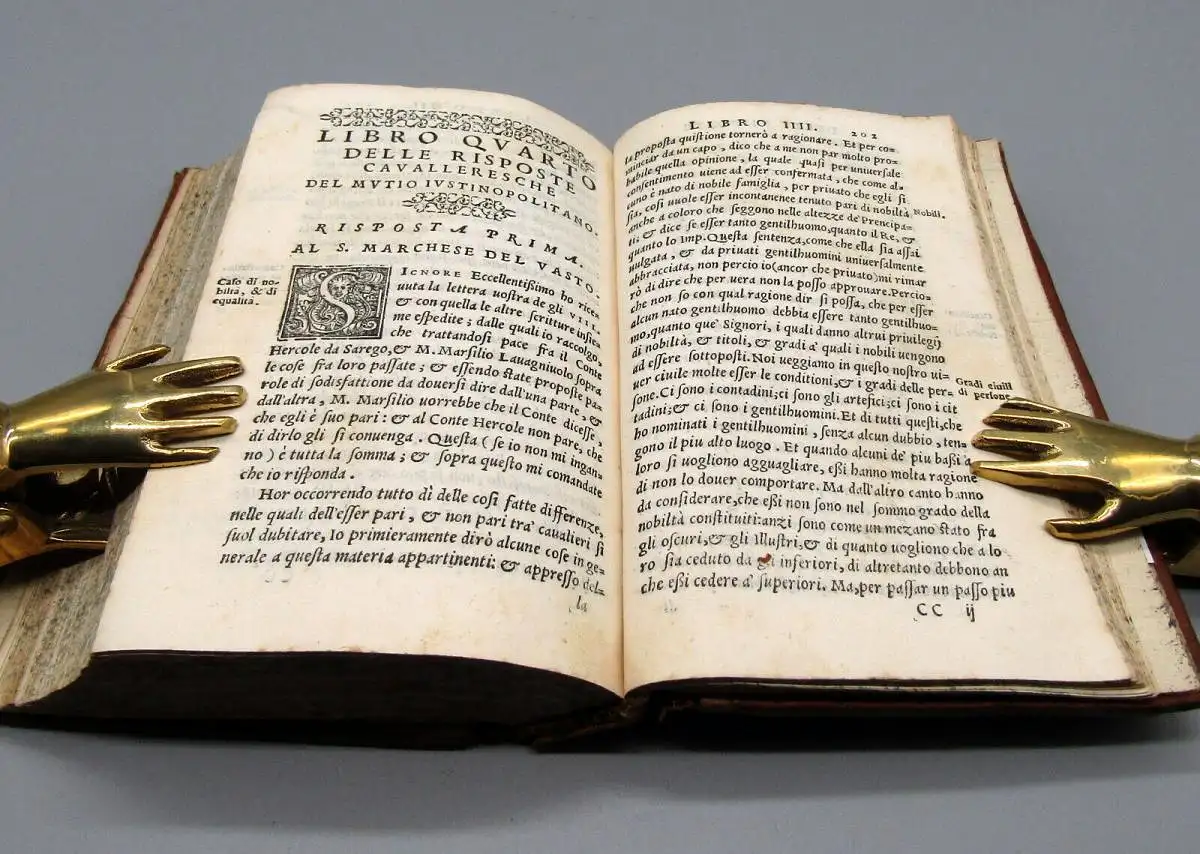 LIBRO QVARTO
DELLE RISPOSTE
CAVALLERESCHE
DEL MVTIO IVSTINOPOLITANO.
RISPOSTA PRIMA.
AL S. MARCHESE DEL VASTO.
Caso di no=
biltà, & di
equalità.
SIGNORE Eccellentissimo ho rice=
uuta la lettera uostra de gli VIII.
& con quella le altre scritture insie=
me espedite; dalle quali io raccolgo,
che trattandosi pace fra il Conte
Hercole da Sarego, & M. Marsilio Lauagniuolo sopra
le cose fra loro passate; & essendo state proposte pa=
role di sodisfattione da douersi dire dall'una parte, &
dall'altra, M. Marsilio uorrebbe che il Conte dicesse,
che egli è suo pari: & al Conte Hercole non pare, che
di dirlo gli si conuenga. Questa (se io non mi ingan=
no) è tutta la somma; & sopra questo mi comandate
che io risponda.
Hor occorrendo tutto dì delle cosi fatte differenze,
nelle quali dell'esser pari, & non pari tra' caualieri si
suol dubitare, Io primieramente dirò alcune cose in ge=
nerale a questa materia appartinenti: & appresso del=
la
LIBRO IIII. 202
la proposta quistione tornerò a ragionare. Et per co=
minciar da un capo, dico che a me non par molto pro=
babile quella opinione, la quale quasi per uniuersale
consentimento uiene ad esser confermata, che come al=
cuno è nato di nobile famiglia, per priuato che egli si
sia, cosi uuole esser incontanente tenuto pari di nobiltà
Nobili.
anche a coloro che seggono nelle altezze de' Prencipa=
ti; & dice se esser tanto gentilhuomo, quanto il Re, &
quanto lo Imp. Questa sentenza, come che ella sia assai
uulgata, & da priuati gentilhuomini uniuersalmente
abbracciata, non percio io (ancor che priuato) mi rimar
rò di dire che per uera non la posso approuare. Percio=
che non so con qual ragione dir si possa, che per esser
alcun nato gentilhuomo debbia essere tanto gentilhuo=
mo, quanto que' Signori, i quali danno altrui priuilegij
di nobiltà, & titoli, & gradi a' quali i nobili uengono
ad essere sottoposti. Noi ueggiamo in questo nostro ui=
uer ciuile molte esser le conditioni, & i gradi delle per=
Gradi ciuili
di persone
sone. Ci sono i contadini; ci sono gli artefici; ci sono i cit
tadini; & ci sono i gentilhuomini. Et di tutti questi, che
ho nominati i gentilhuomini, senza alcun dubbio, ten=
gono il piu alto luogo. Et quando alcuni de' piu bassi a
loro si uogliono agguagliare, essi hanno molta ragione
di non lo douer comportare. Ma dall'altro canto hanno
da considerare, che essi non sono nel sommo grado della
nobiltà constituiti: anzi sono come un mezano stato fra
gli oscuri, & gli illustri, & di quanto uogliono che a lo
ro sia ceduto da gli inferiori, di altretanto debbono an
che essi cedere a' superiori. Ma, per passar un passo piu
CC ij